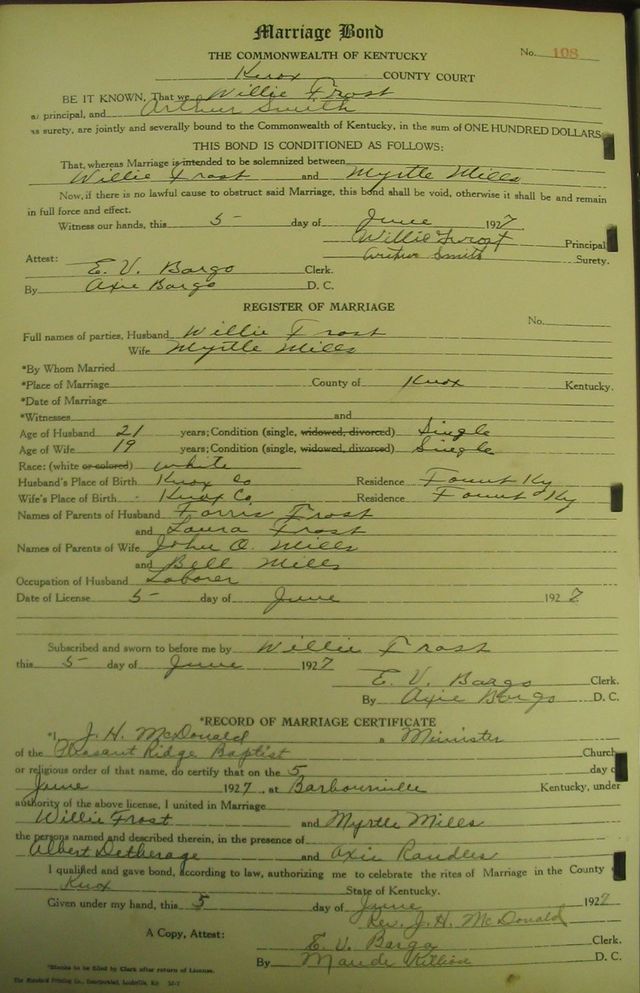 Marriage Bond
THE COMMONWEALTH OF KENTUCKY
No. 108
Knox COUNTY COURT
BE IT KNOWN, That we Willie Frost
as principal, and Arthur Smith
as surety, are jointly and severally bound to the Commonwealth of Kentucky, in the sum of ONE HUNDRED DOLLARS
THIS BOND IS CONDITIONED AS FOLLOWS:
That, whereas Marriage is intended to be solemnized between
Willie Frost and Myrtle Mills
Now, if there is no lawful cause to obstruct said Marriage, this bond shall be void, otherwise it shall be and remain
in full force and effect.
Witness our hands, this 5 day of June 1927
Willie Frost Principal
Arthur Smith Surety.
Attest:
E. V. Bargo Clerk.
By Axie Bargo D. C.
REGISTER OF MARRIAGE
No.
Full names of parties, Husband Willie Frost
Wife Myrtle Mills
*By Whom Married
*Place of Marriage County of Knox Kentucky.
*Date of Marriage
*Witnesses and
Age of Husband 21 years; Condition (single, widowed, divorced) Single
Age of Wife 19 years; Condition (single, widowed, divorced) Single
Race: (white or colored) white
Husband's Place of Birth Knox Co Residence Fount Ky
Wife's Place of Birth Knox Co. Residence Fount Ky
Names of Parents of Husband Farris Frost
and Laura Frost
Names of Parents of Wife John O. Mills
and Bell Mills
Occupation of Husband Laborer
Date of License 5 day of June 1927
Subscribed and sworn to before me by Willie Frost
this 5 day of June 1927
E. V. Bargo Clerk.
By Axie Bargo D. C.
*RECORD OF MARRIAGE CERTIFICATE
*I, J. H. McDonald a Minister
of the Pleasant Ridge Baptist Church
or religious order of that name, do certify that on the 5 day o
June 1927, at Barbourville Kentucky, under
authority of the above license, I united in Marriage
Willie Frost and Myrtle Mills
the persons named and described therein, in the presence of
Albert Detherage and Axie Randles
I qualified and gave bond, according to law, authorizing me to celebrate the rites of Marriage in the County
Knox State of Kentucky.
Given under my hand, this 5 day of June 1927
Rev. J. H. McDonald
A Copy, Attest: E. V. Bargo Clerk.
By Maude Killion D. C.
*Blanks to be filed by Clerk after return of License.
The Standard Printing Co., Incorporated, Louisville, Ky.